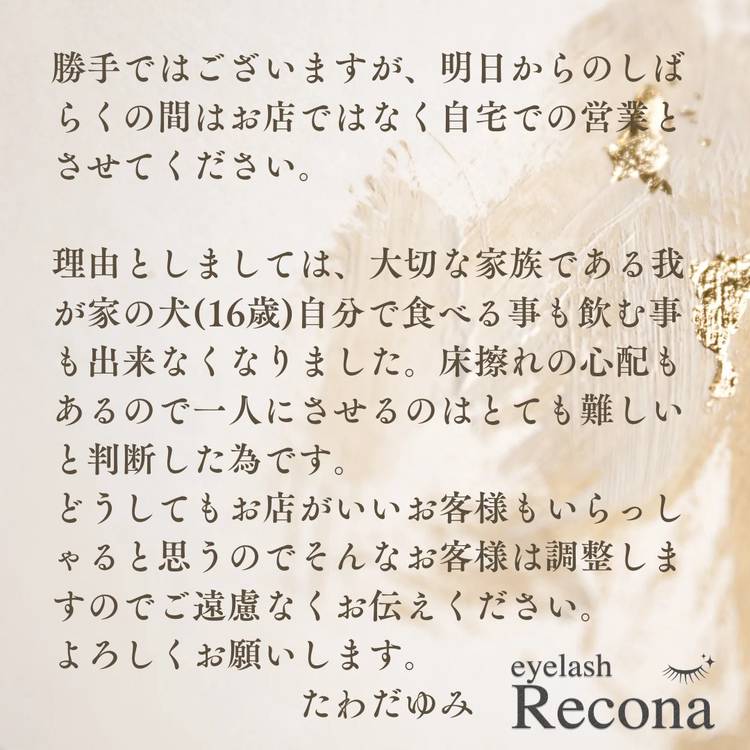 勝手ではございますが、明日からのしば
らくの間はお店ではなく自宅での営業と
させてください。
理由としましては、大切な家族である我
が家の犬(16歳)自分で食べる事も飲む事
も出来なくなりました。床擦れの心配も
あるので一人にさせるのはとても難しい
と判断した為です。
どうしてもお店がいいお客様もいらっし
ゃると思うのでそんなお客様は調整しま
すのでご遠慮なくお伝えください。
よろしくお願いします。
たわだゆみ
eyelash
Recona